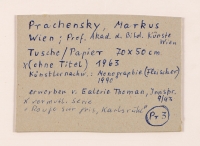 Prachensky, Markus
Wien; Prof. Akad. d. bild. Künste
Wien
Tusche/Papier 70x50cm
x (ohne Titel) 1963
Künstlernachw.: Monographie (Fleischer)
1990
erworben v. Galerie Thoman, Innsbr.
9/93
x vermutl. Serie
"Rouge sur gris, Karlsruhe"
Pr 3